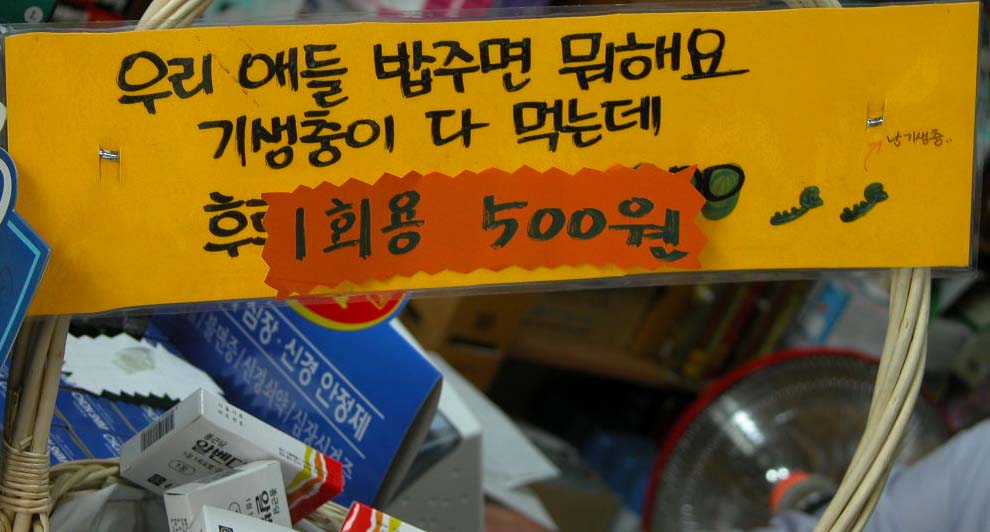 우리 애들 밥주면 뭐해요
기생충이 다 먹는데
난 기생충..
1회용 500원
심장·신경 안정제
불면증/신경쇠약/심장신경증
종근당
알벤다
종근당